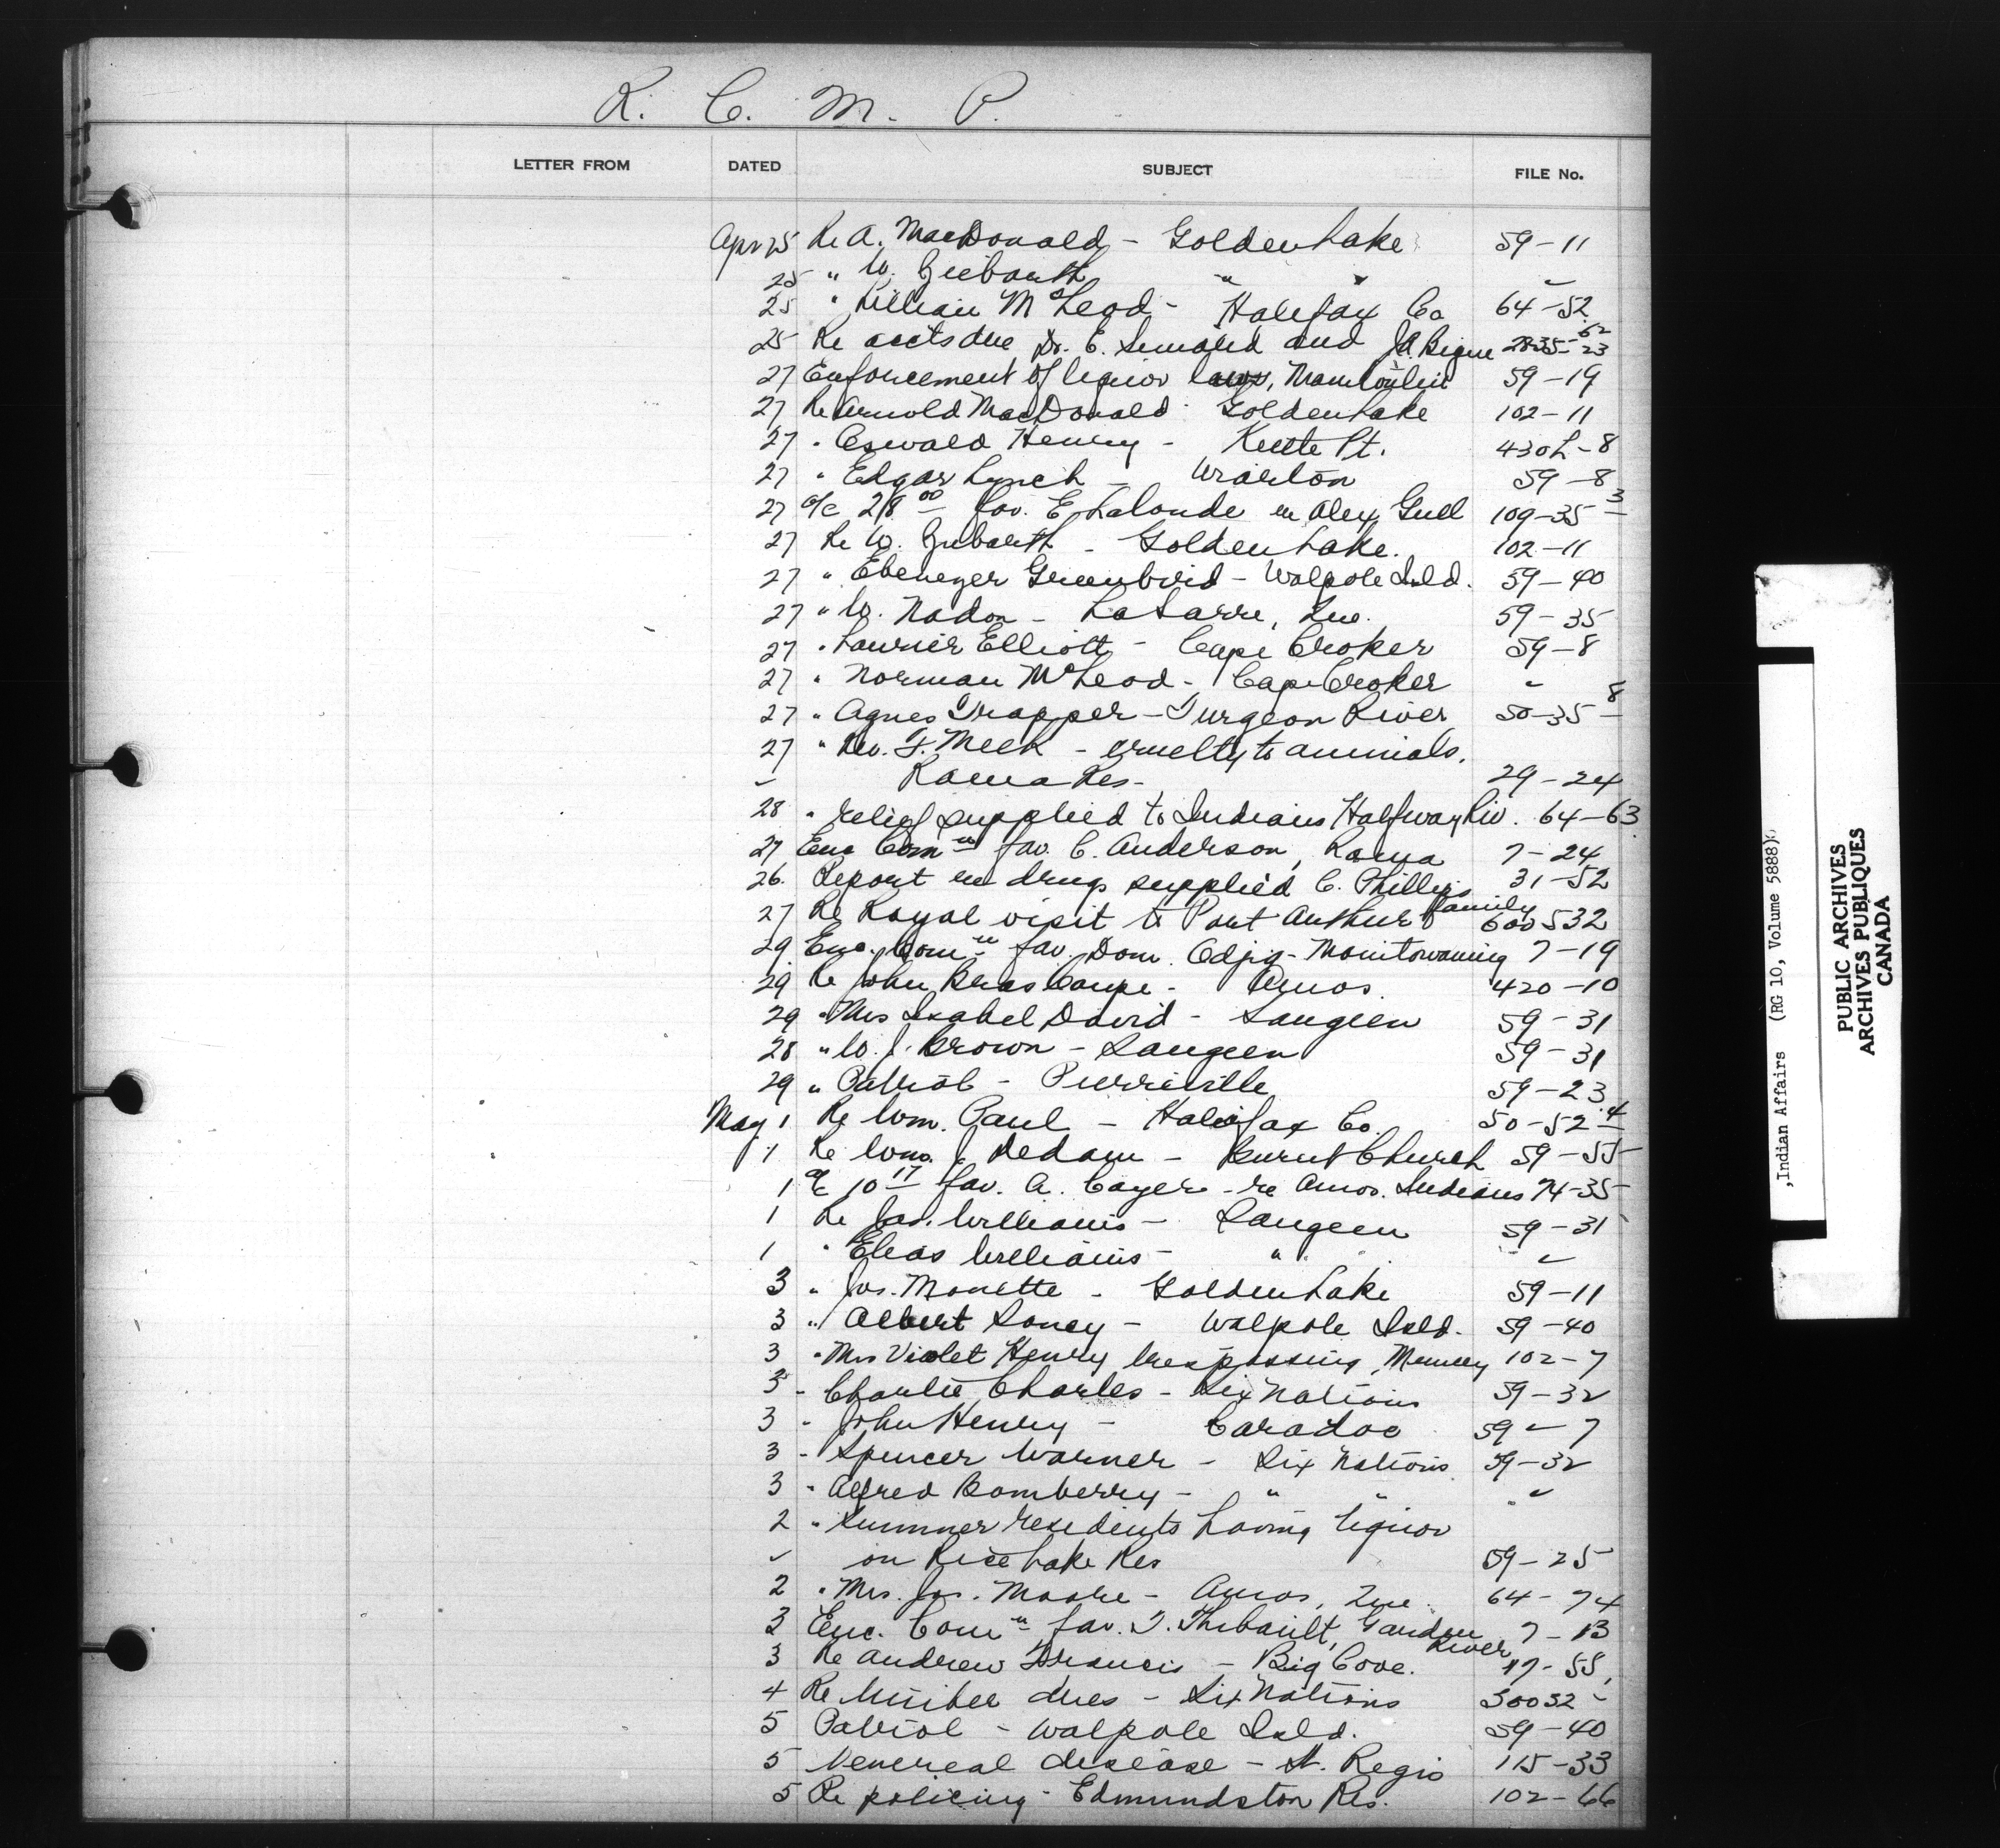 R. C. M. P.
LETTER FROM DATED SUBJECT FILE No.
Apr 25 Re A. MacDonald - Golden Lake 59-11
25 " W. " "
25 " Lillian McLeod - Halifax Co 64-52
25 Re accts due Dr. E. and
27 Enforcement of liquor laws, Manitoulin 59-19
27 Re Arnold MacDonald Golden Lake 102-11
27 " Oswald Henry - Kettle Pt. 430 L-8
27 " Edgar Lynch - Wiarton 59-8
27 a/c 28 00 fav. E Lalonde re Alex Gull 109-35 3
27 Re W. - Golden Lake. 102-11
27 " Ebenezer Greenbird - Walpole Isld. 59-40
27 " W. Nadon - LaSarre, Que. 59-35
27 " Laurier Elliott - Cape Croker 59-8
27 " Norman McLeod - Cape Croker "
27 " Agnes Trapper - Turgeon River 50-35 8
27 " Rev. F. Meek - cruelty to animals.
" Rama Res - 29-24
28 " relief supplied to Indians Halfway Riv. 64-63
27 Enc Comn fav. C. Anderson, Rama 7-24
26 Report re drugs supplied C. Phillips family 31-52
27 Re Royal visit to Port Arthur 600532
29 Enc. Comn fav. Dom. Odjig - Manitowaning 7-19
29 Re John Bras Coupe - Amos 420-10
29 " Mrs Isabel David - Saugeen 59-31
28 " W. J. Brown - Saugeen 59-31
29 " Patrol - Pierreville 59-23
May 1 Re Wm. Paul - Halifax Co. 50-52 4
1 Re Wm. J. Dedam - Burnt Church 59-55
1 a/c 10 17 fav. A. Cayer - re Amos Indians 74-35
1 Re Jas. Williams - Saugeen 59-31
1 " Elias Williams - " "
3 " Jos. Monette - Golden Lake 59-11
3 " Albert Soney - Walpole Isld. 59-40
3 " Mrs Violet Henry trespassing, Muncey 102-7
3 " Charlie Charles - Six Nations 59-32
3 " John Henry - Caradoc 59-7
3 " Spencer Warner - Six Nations 59-32
3 " Alfred Bomberry - " " "
2 " Summer residents having liquor
" on Rice Lake Res 59-25
2 " Mrs. Jos. Moore - Amos, Que. 64-74
3 Enc. Comn fav. T. Thibault, Garden River 7-13
3 Re Andrew Francis - Big Cove. 17-55
4 Re timber dues - Six Nations 30032
5 Patrol - Walpole Isld. 59-40
5 Venereal disease - St. Regis 115-33
5 Re policing - Edmundston Res. 102-66
,Indian Affairs (RG 10, Volume 5888)
PUBLIC ARCHIVES
ARCHIVES PUBLIQUES
CANADA